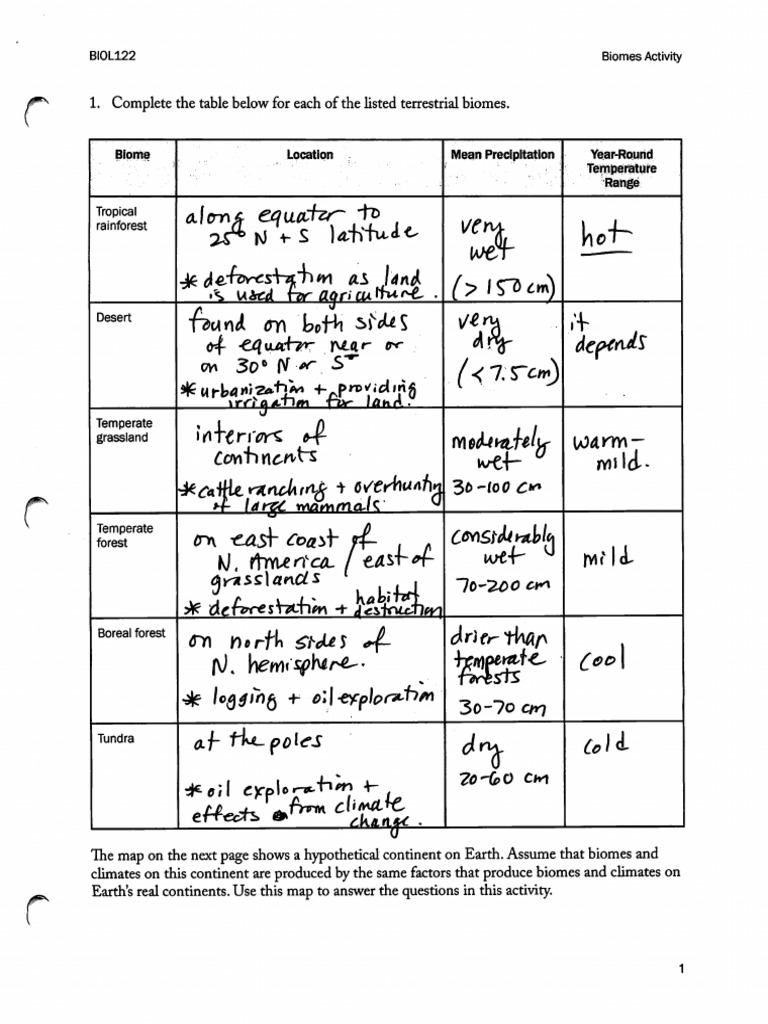 BIOL122
Biomes Activity
1. Complete the table below for each of the listed terrestrial biomes.
Biome
Location
Mean Precipitation
Year-Round
Temperature
Range
Tropical
rainforest
along equator to
25° N + S latitude
* deforestation as land
is used for agriculture.
very
wet
(> 150 cm)
hot
Desert
found on both sides
of equator near or
on 30° N or S
* urbanization + providing
irrigation for land.
very
dry
(< 7.5 cm)
it
depends
Temperate
grassland
interiors of
continents
* cattle ranching + overhunting
of large mammals
moderately
wet
30-100 cm
warm-
mild.
Temperate
forest
on east coast of
N. America / east of
grasslands
* deforestation + habitat
destruction
considerably
wet
70-200 cm
mild
Boreal forest
on north sides of
N. hemisphere.
* logging + oil exploration
drier than
temperate
forests
30-70 cm
cool
Tundra
at the poles
* oil exploration +
effects from climate
change.
dry
20-60 cm
cold
The map on the next page shows a hypothetical continent on Earth. Assume that biomes and
climates on this continent are produced by the same factors that produce biomes and climates on
Earth's real continents. Use this map to answer the questions in this activity.
1